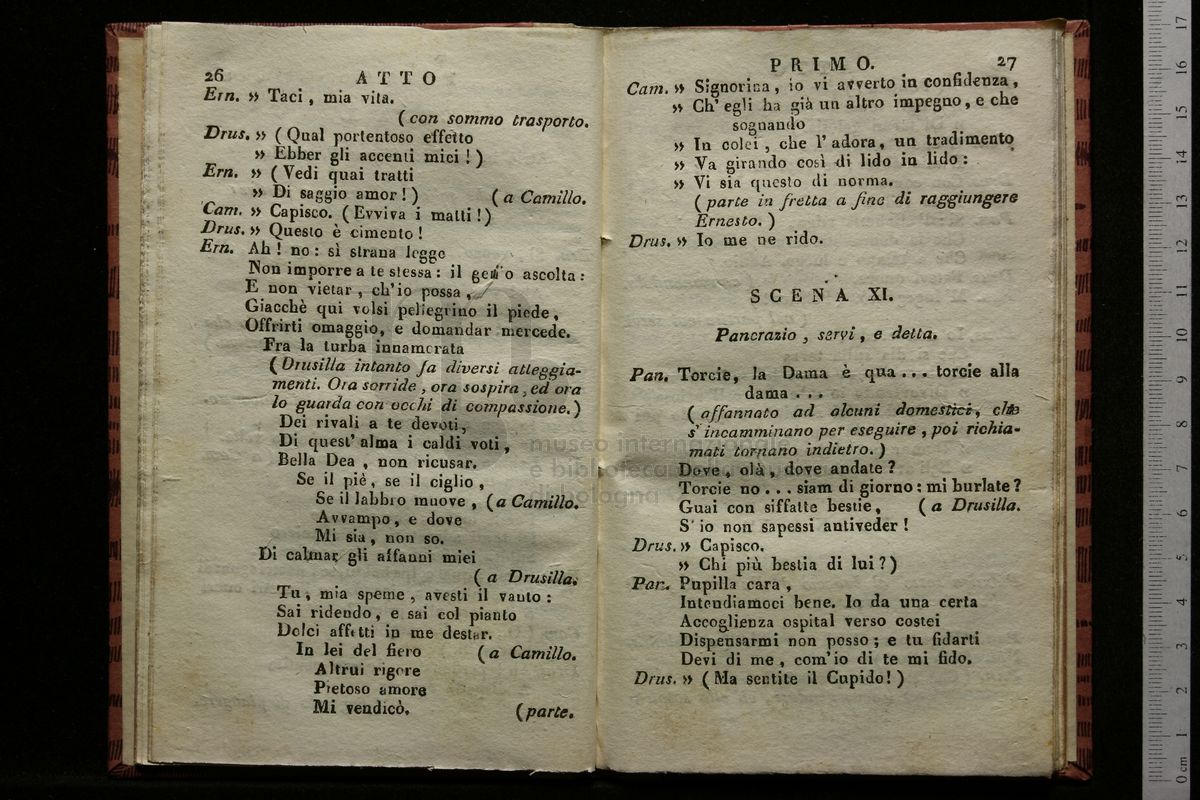 26
ATTO
Ern. » Taci, mia vita.
(con sommo trasporto.
Drus. » (Qual portentoso effetto
» Ebber gli accenti miei!)
Ern. » (Vedi quai tratti
» Di saggio amor!) (a Camillo.
Cam. » Capisco. (Evviva i matti!)
Drus. » Questo è cimento!
Ern. Ah! no: sì strana legge
Non imporre a te stessa: il genio ascolta:
E non vietar, ch'io possa,
Giacchè qui volsi pellegrino il piede,
Offrirti omaggio, e domandar mercede.
Fra la turba innamorata
(Drusilla intanto fa diversi atteggia-
menti. Ora sorride, ora sospira, ed ora
lo guarda con occhi di compassione.)
Dei rivali a te devoti,
Di quest' alma i caldi voti,
Bella Dea, non ricusar.
Se il piè, se il ciglio,
Se il labbro muove, (a Camillo.
Avvampo, e dove
Mi sia, non so.
Di calmar gli affanni miei
(a Drusilla.
Tu, mia speme, avesti il vanto:
Sai ridendo, e sai col pianto
Dolci affetti in me destar.
In lei del fiero (a Camillo.
Altrui rigore
Pietoso amore
Mi vendicò. (parte.
PRIMO.
27
Cam. » Signorina, io vi avverto in confidenza,
» Ch' egli ha già un altro impegno, e che
sognando
» In colei, che l' adora, un tradimento
» Va girando così di lido in lido:
» Vi sia questo di norma.
(parte in fretta a fine di raggiungere
Ernesto.)
Drus. » Io me ne rido.
SCENA XI.
Pancrazio, servi, e detta.
Pan. Torcie, la Dama è qua... torcie alla
dama...
(affannato ad alcuni domestici, che
s' incamminano per eseguire, poi richia-
mati tornano indietro.)
Dove, olà, dove andate?
Torcie no... siam di giorno: mi burlate?
Guai con siffatte bestie, (a Drusilla.
S' io non sapessi antiveder!
Drus. » Capisco.
» Chi più bestia di lui?)
Pan. Pupilla cara,
Intendiamoci bene. Io da una certa
Accoglienza ospital verso costei
Dispensarmi non posso; e tu fidarti
Devi di me, com'io di te mi fido.
Drus. » (Ma sentite il Cupido!)
museo internazionale
e biblioteca
di bologna
0 cm 1 2 3 4 5 6 7 8 9 10 11 12 13 14 15 16 17